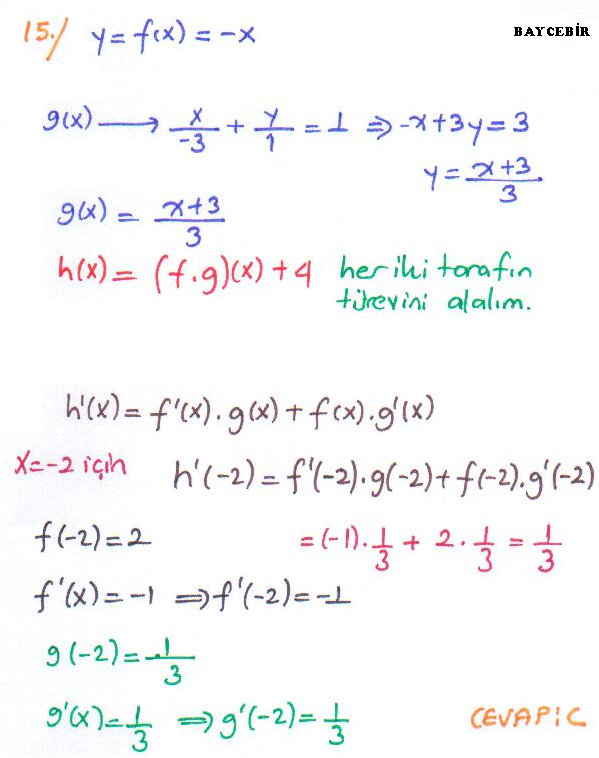 15./ y = f(x) = -x
BAYCEBİR
g(x) ⟶ x/-3 + y/1 = 1 ⇒ -x+3y = 3
y = x+3/3
g(x) = x+3/3
h(x) = (f.g)(x) + 4 her iki tarafın
türevini alalım.
h'(x) = f'(x).g(x) + f(x).g'(x)
x=-2 için h'(-2) = f'(-2).g(-2) + f(-2).g'(-2)
f(-2) = 2 = (-1).1/3 + 2.1/3 = 1/3
f'(x) = -1 ⇒ f'(-2) = -1
g(-2) = 1/3
g'(x) = 1/3 ⇒ g'(-2) = 1/3
CEVAP|C